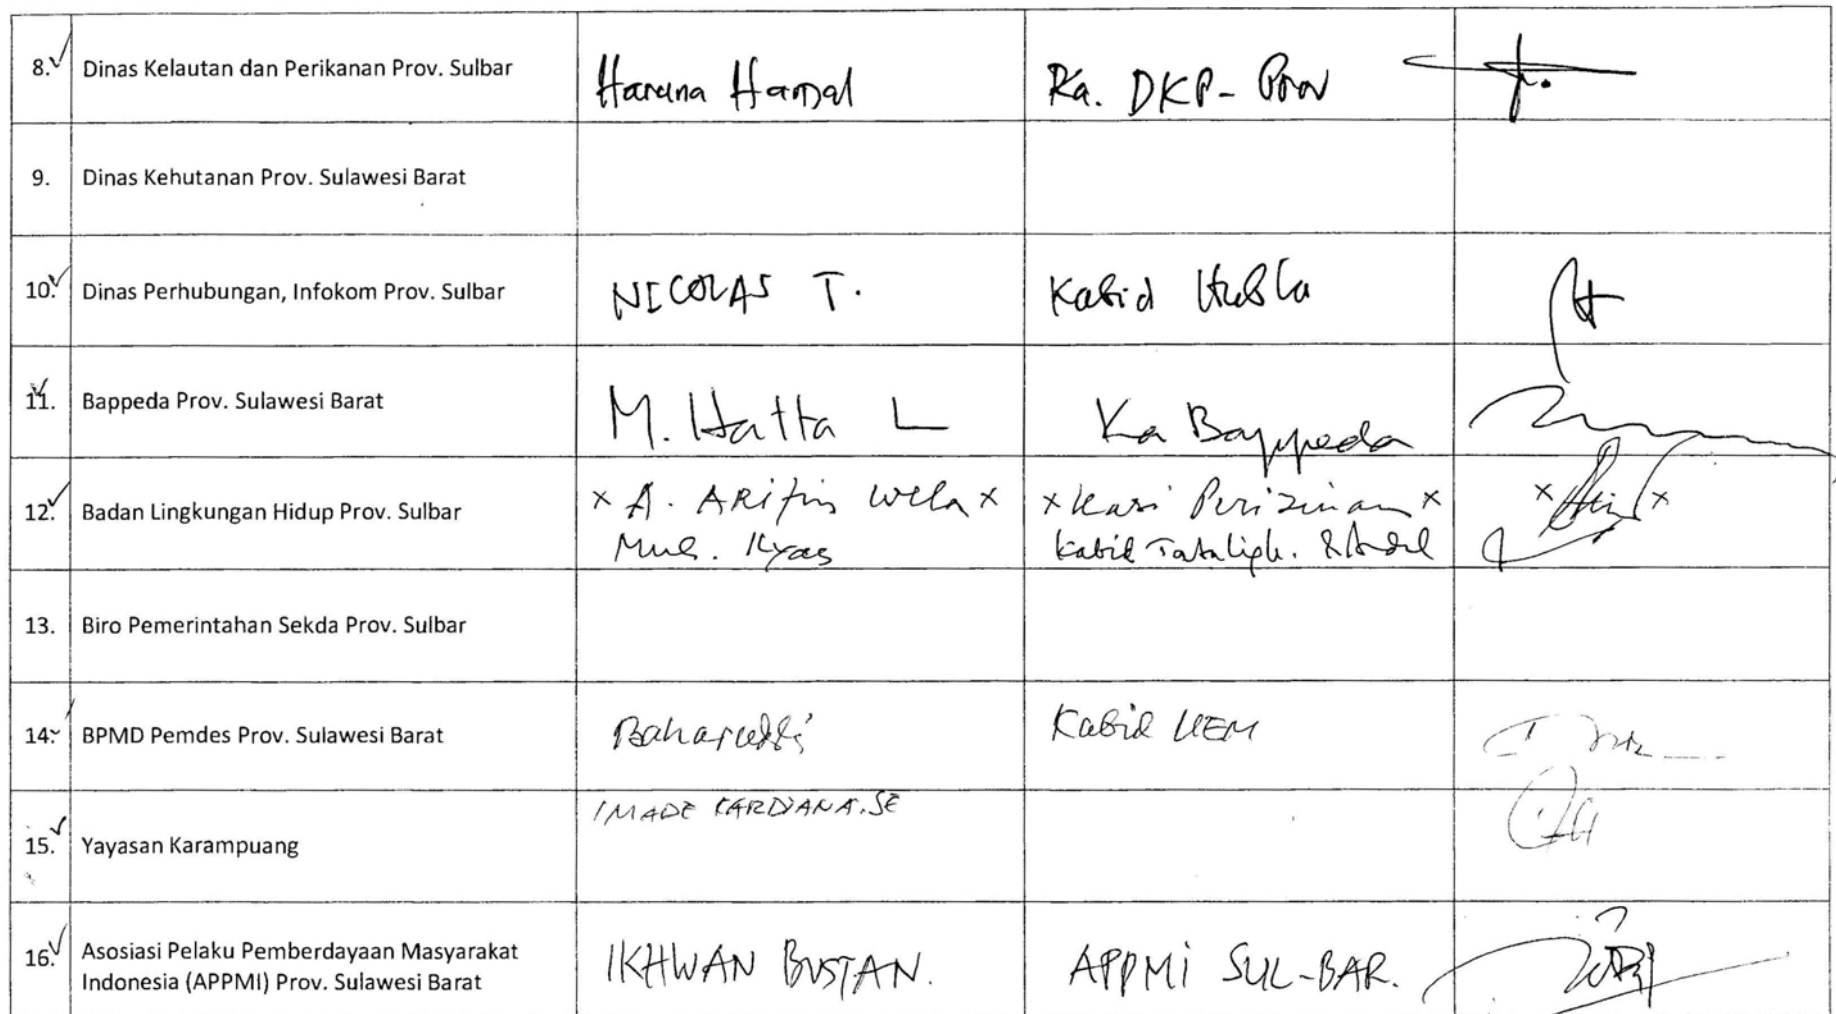 8. Dinas Kelautan dan Perikanan Prov. Sulbar Haruna Hamal Ka. DKP- Prov
9. Dinas Kehutanan Prov. Sulawesi Barat
10. Dinas Perhubungan, Infokom Prov. Sulbar NICOLAS T. Kabid Hubla
11. Bappeda Prov. Sulawesi Barat M. Hatta L Ka Bappeda
12. Badan Lingkungan Hidup Prov. Sulbar x A. ARifin Wela x x Kasi Perizinan x
Muh. Ilyas Kabid
13. Biro Pemerintahan Sekda Prov. Sulbar
14. BPMD Pemdes Prov. Sulawesi Barat Kabid UEM
IMADE KARDIANA.SE
15. Yayasan Karampuang
16. Asosiasi Pelaku Pemberdayaan Masyarakat
Indonesia (APPMI) Prov. Sulawesi Barat IKHWAN BUSTAN. APPMI SUL-BAR.